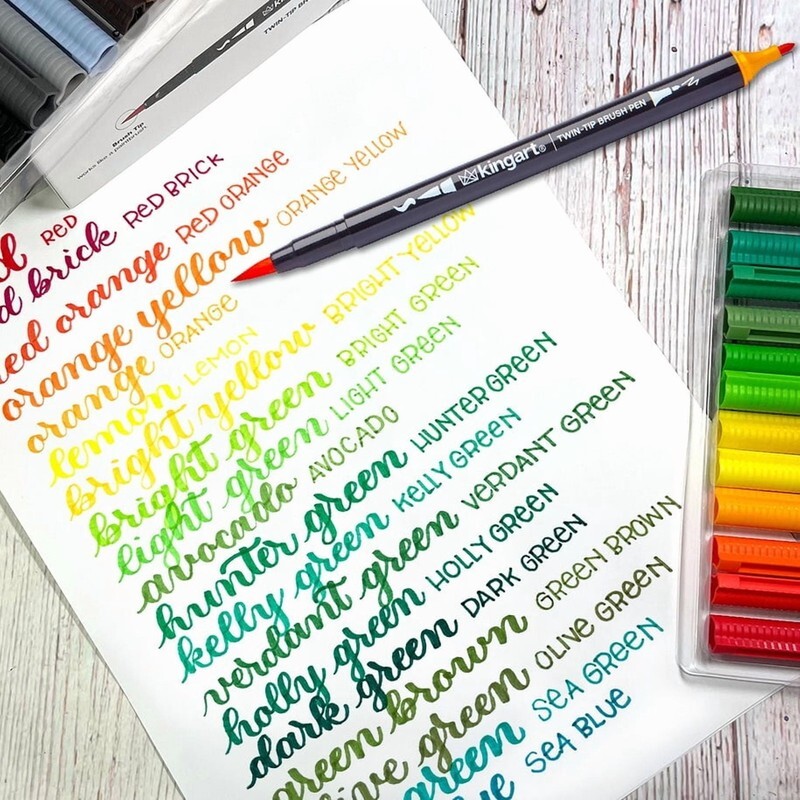 kingart
TWIN-TIP BR
Brush Tip
Works like a paintbrush
kingart® | TWIN-TIP BRUSH PEN
RED
d brick RED BRICK
red orange RED ORANGE
orange yellow ORANGE YELLOW
orange ORANGE
lemon LEMON
bright yellow BRIGHT YELLOW
bright green BRIGHT GREEN
light green LIGHT GREEN
avocado AVOCADO
hunter green HUNTER GREEN
kelly green KELLY GREEN
verdant green VERDANT GREEN
holly green HOLLY GREEN
dark green DARK GREEN
green brown GREEN BROWN
live green OLIVE GREEN
green SEA GREEN
ue SEA BLUE